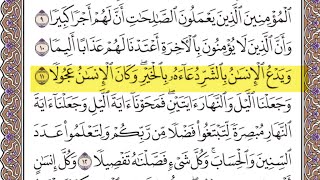 ٱلْمُؤْمِنِينَ ٱلَّذِينَ يَعْمَلُونَ ٱلصَّٰلِحَٰتِ أَنَّ لَهُمْ أَجْرًا كَبِيرًا ٩
وَأَنَّ ٱلَّذِينَ لَا يُؤْمِنُونَ بِٱلْءَاخِرَةِ أَعْتَدْنَا لَهُمْ عَذَابًا أَلِيمًا ١٠
وَيَدْعُ ٱلْإِنسَٰنُ بِٱلشَّرِّ دُعَآءَهُۥ بِٱلْخَيْرِ ۖ وَكَانَ ٱلْإِنسَٰنُ عَجُولًا ١١
وَجَعَلْنَا ٱلَّيْلَ وَٱلنَّهَارَ ءَايَتَيْنِ ۖ فَمَحَوْنَآ ءَايَةَ ٱلَّيْلِ وَجَعَلْنَآ ءَايَةَ
ٱلنَّهَارِ مُبْصِرَةً لِّتَبْتَغُوا۟ فَضْلًا مِّن رَّبِّكُمْ وَلِتَعْلَمُوا۟ عَدَدَ
ٱلسِّنِينَ وَٱلْحِسَابَ ۚ وَكُلَّ شَىْءٍ فَصَّلْنَٰهُ تَفْصِيلًا ١٢ وَكُلَّ إِنسَٰنٍ